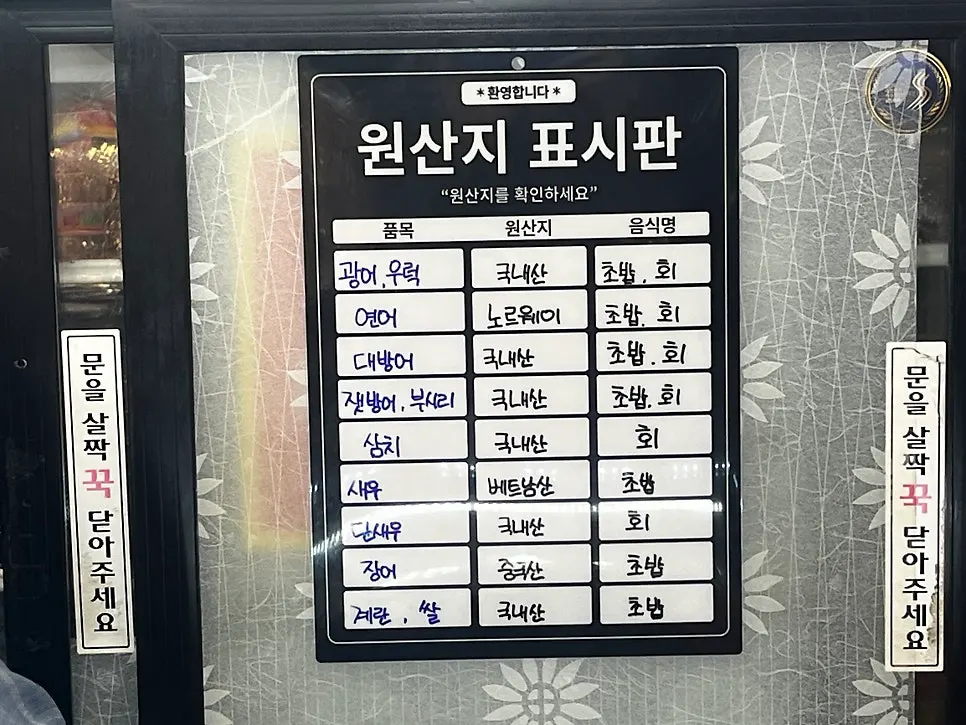 *환영합니다*
원산지 표시판
“원산지를 확인하세요”
품목 원산지 음식명
광어, 우럭 국내산 초밥, 회
연어 노르웨이 초밥, 회
대방어 국내산 초밥, 회
잿방어, 부시리 국내산 초밥, 회
삼치 국내산 회
새우 베트남산 초밥
단새우 국내산 회
장어 중국산 초밥
계란, 쌀 국내산 초밥
문을 살짝 꾹 닫아주세요
문을 살짝 꾹 닫아주세요